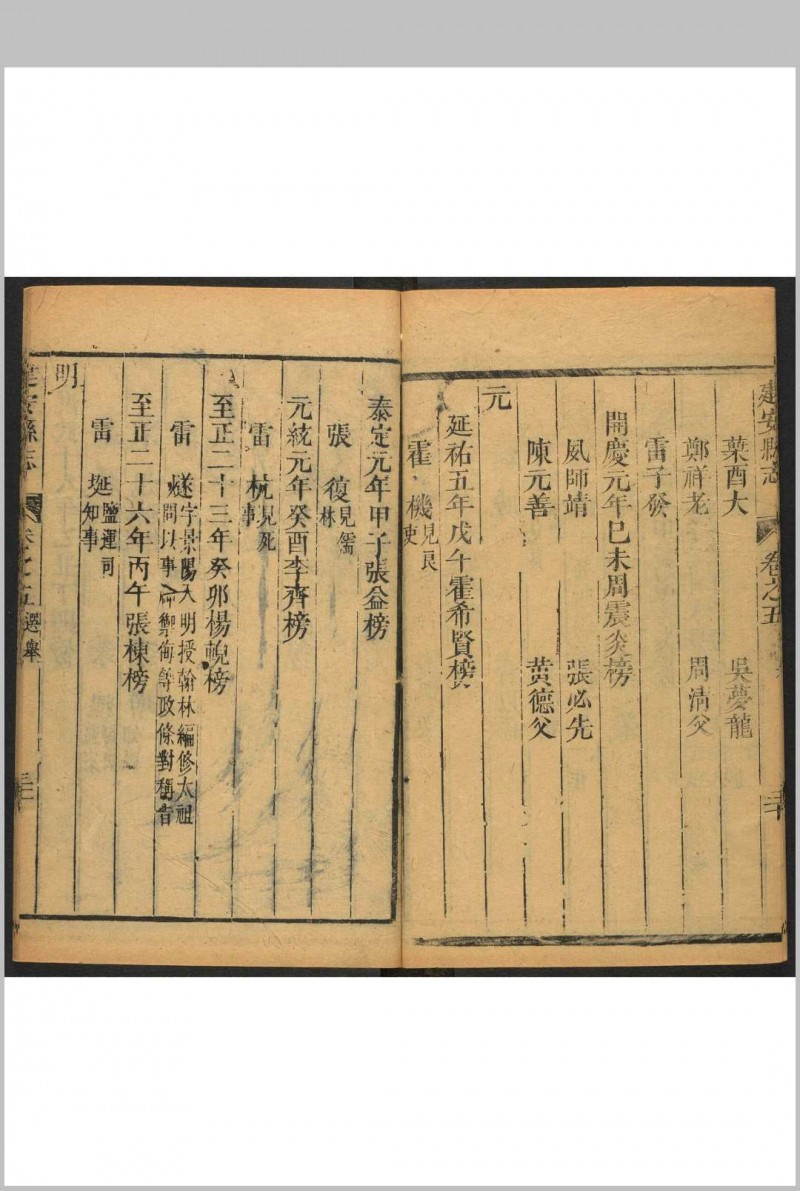 建安縣志 卷之五
葉酉大 吳夢龍
鄭祥老 周清父
雷子發
開慶元年已未周震炎榜
張必先
陳元善 黄德父
元
延祐五年戊午霍希賢榜
霍 機見良吏
泰定元年甲子張益榜
張 復見儒林
元統元年癸酉李齊榜
雷 杭見死事
至正二十三年癸卯楊輗榜
雷 燧字景陽入明授翰林編修太祖問以事神禦侮等政條對稱旨
至正二十六年丙午張棟榜
雷 埏鹽運司知事
明
建安縣志 卷之五選舉